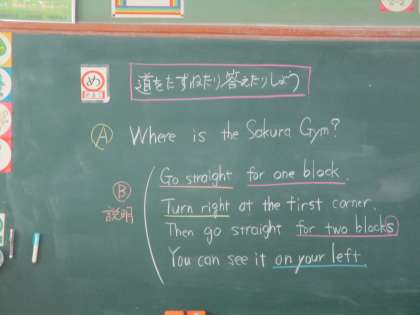 め
道をたずねたり、答えたりしよう
A Where is the Sakura Gym?
B 説明
Go straight for one block.
Turn right at the first corner.
Then go straight for two blocks
You can see it on your left.